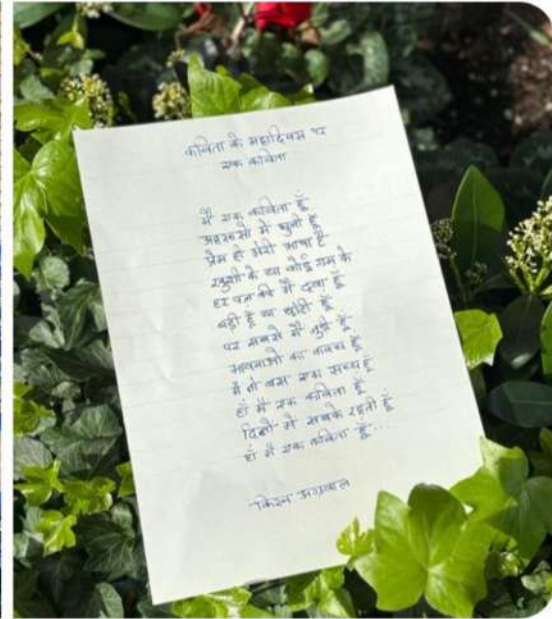 कविता के महादिवस पर
एक कविता
मैं एक कविता हूँ
अहसासों में बुनी हूँ
प्रेम ही मेरी भाषा है
खुशी के या कोई गम के
हर पल की मैं दवा हूँ
बड़ी हूँ या छोटी हूँ
पर सबसे मैं जुड़ी हूँ
भावनाओं का
मैं तो बस एक हूँ
हाँ मैं एक कविता हूँ
दिलों में सबके रहती हूँ
हाँ मैं एक कविता हूँ...
किरन अग्रवाल